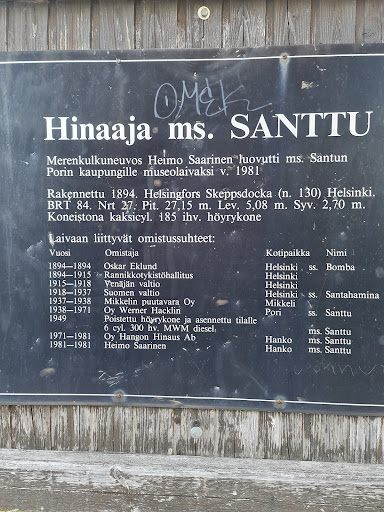 OMEK
Hinaaja ms. SANTTU
Merenkulkuneuvos Heimo Saarinen luovutti ms. Santun
Porin kaupungille museolaivaksi v. 1981
Rakennettu 1894. Helsingfors Skeppsdocka (n. 130) Helsinki.
BRT 84. Nrt 27. Pit. 27,15 m. Lev. 5,08 m. Syv. 2,70 m.
Koneistona kaksicyl. 185 ihv. höyrykone
Laivaan liittyvät omistussuhteet:
Vuosi Omistaja Kotipaikka Nimi
1894—1894 Oskar Eklund Helsinki ss. Bomba
1894—1915 Rannikkotykistöhallitus Helsinki
1915—1918 Venäjän valtio Helsinki
1918—1937 Suomen valtio Helsinki ss. Santahamina
1937—1938 Mikkelin puutavara Oy Mikkeli
1938—1971 Oy Werner Hacklin Pori ss. Santtu
1949 Poistettu höyrykone ja asennettu tilalle
6 cyl. 300 hv. MWM diesel. ms. Santtu
1971—1981 Oy Hangon Hinaus Ab Hanko ms. Santtu
1981—1981 Heimo Saarinen Hanko ms. Santtu